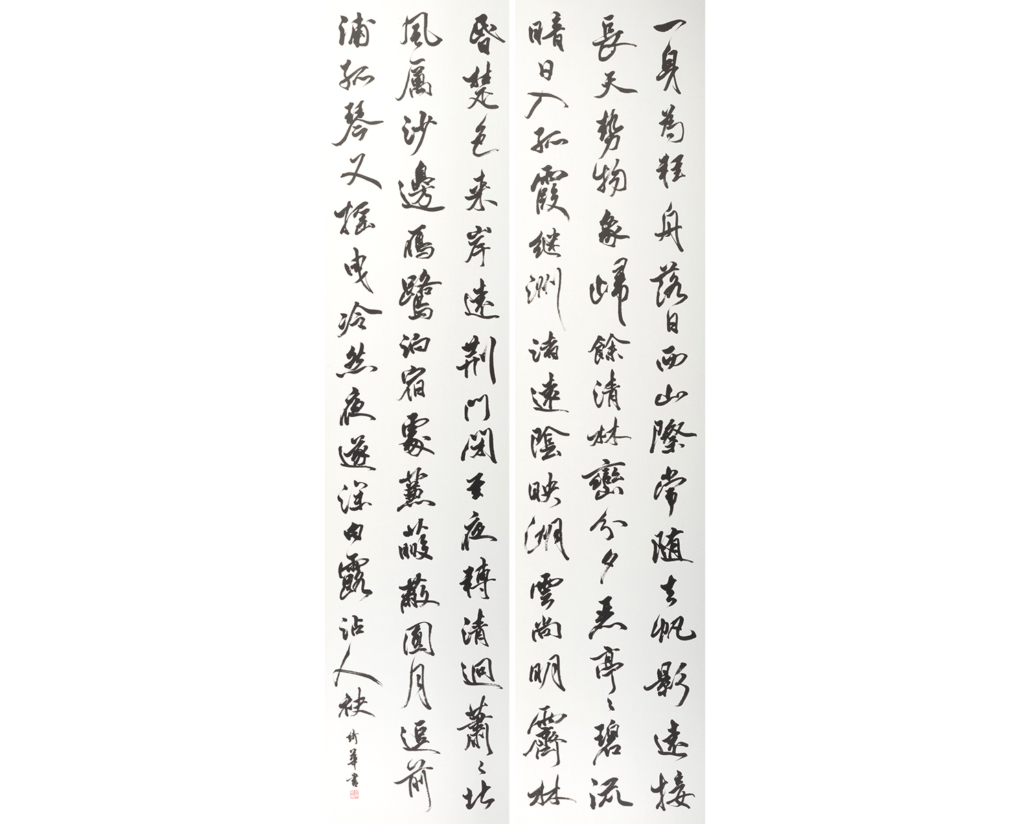 一身為輕舟落日西山際常随去帆影遠接
長天勢物象歸餘清林巒分夕麗亭〻碧流
暗日入孤霞継洲渚遠陰映湖雲尚明霽林
昏楚色来岸遠荆門閉至夜轉清迥蕭〻北
風厲沙邊鴈鷺泊宿處蒹葭蔽圓月逗前
浦孤琴又搖曳冷然夜遂深白露沾人袂
華書